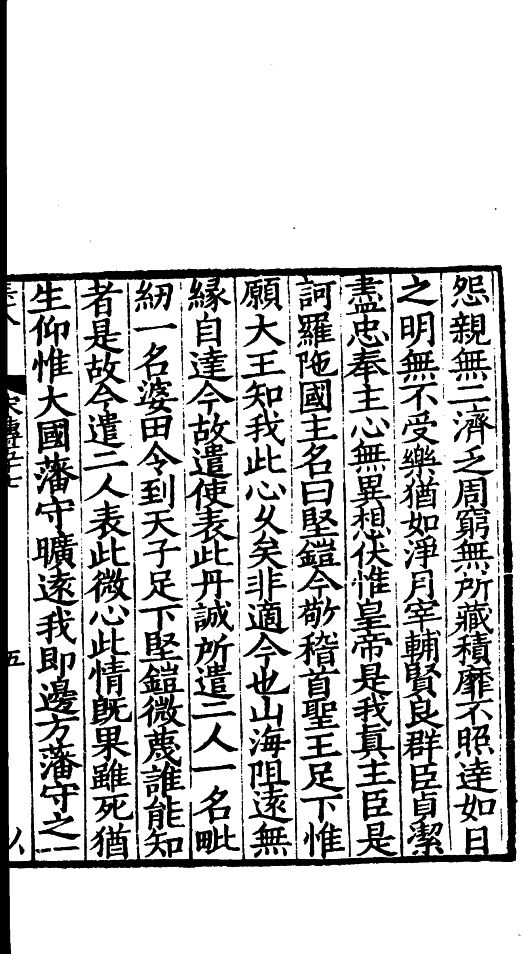 怨親無二濟乏周窮無所藏積靡不照達如日
之明無不受樂猶如淨月宰輔賢良群臣貞潔
盡忠奉主心無異想伏惟皇帝是我真主臣是
訶羅陁國主名曰堅鎧今敬稽首聖王足下惟
願大王知我此心久矣非適今也山海阻遠無
緣自達今故遣使表此丹誠所遣二人一名毗
紉一名婆田令到天子足下堅鎧微蔑誰能知
者是故今遣二人表此微心此情旣果雖死猶
生仰惟大國藩守曠遠我即邊方藩守之一
宋傳五十七
五